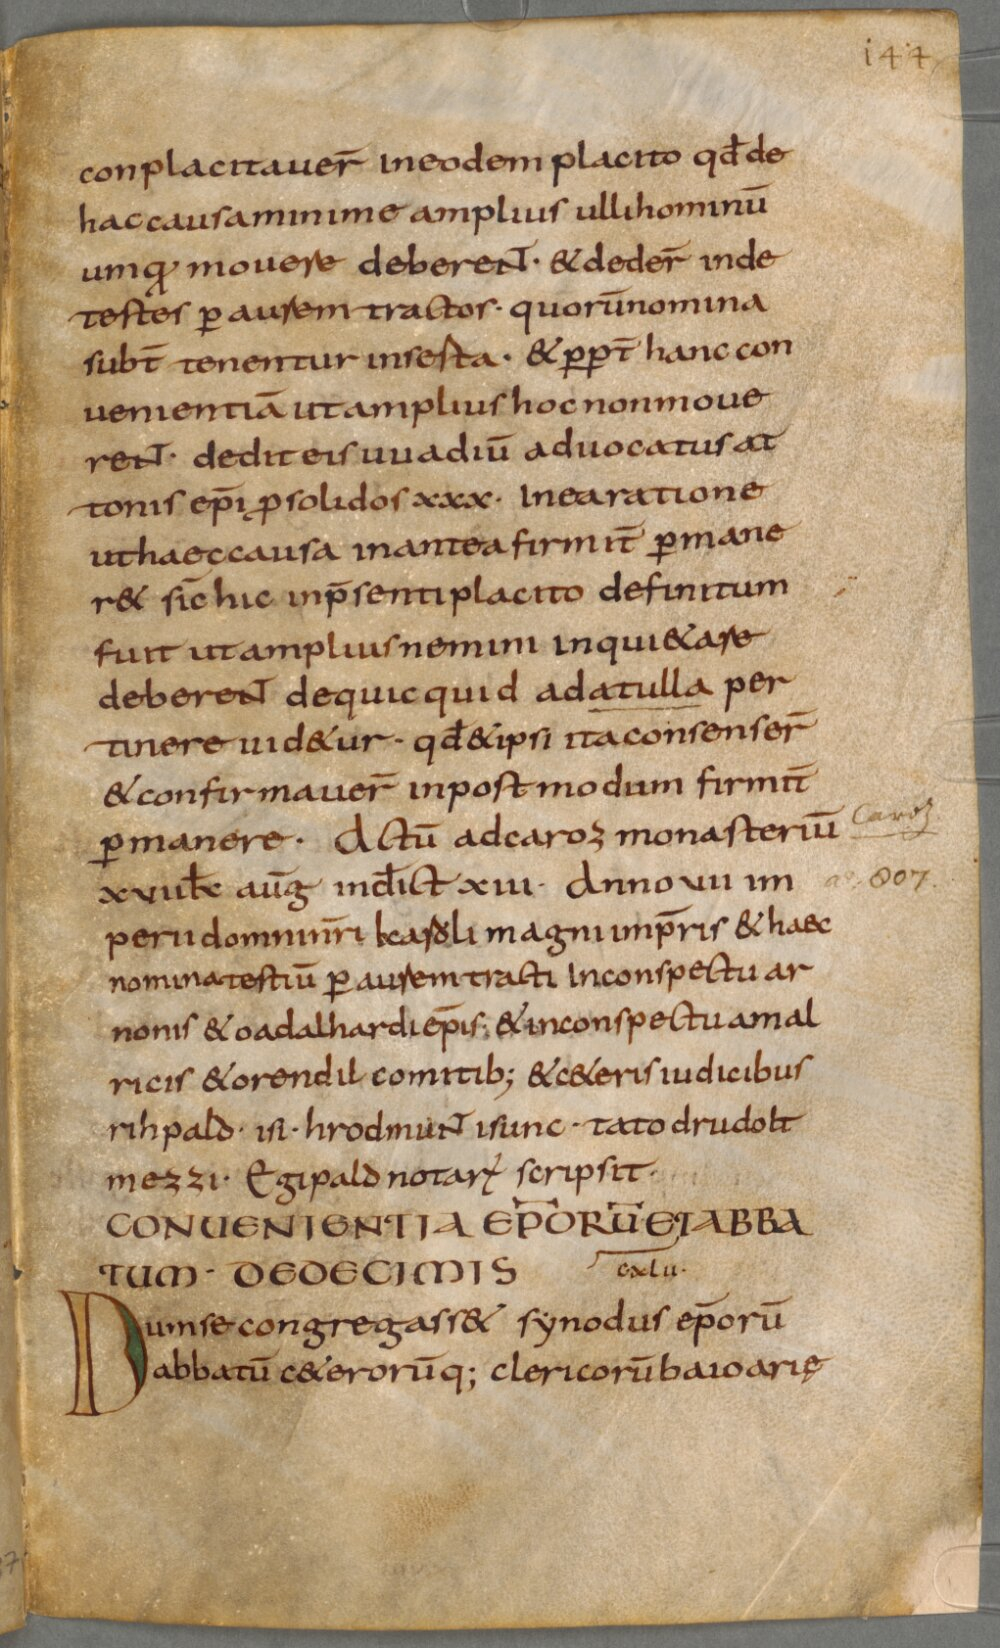 144
conplacitauer̄ ineodem placito qđ de
hac causa minime amplius ulli hominū
umq̄ mouere deberent· & deder̄ inde
testes ꝑ aurem tractos· quorū nomina
subt̄ tenentur inserta· & ꝓpt̄ hanc con
uenientiā ut amplius hoc non moue
rent· dedit eis uuadiū aduocatus at
tonis ep̄i ꝓ solidos xxx· In ea ratione
ut haec causa in antea firmit̄ ꝑmane
r& sic̄ hic in p̄senti placito definitum
fuit ut amplius nemini inqui&are
deberent de quicquid ad atulla per
tinere uid&ur· qđ & ipsi ita consenser̄
& confirmauer̄ in postmodum firmit̄
ꝑmanere· Actū ad caroz monasteriū
Caroz
xvii kł aūg indict xiii· Anno vii im
aº. 807.
perii domni nr̄i karoli magni imp̄ris & haec
nomina testiū ꝑ aurem tracti In conspectu ar
nonis & oadalhardi ep̄is; & in conspectu amal
ricis & orendil comitib; & c&eris iudicibus
rihpald· isi· hrodmunt isunc· tato drudolt
mezzi· Egipald notar scripsit·
CONUENIENTIA EP̄ORŪ ET ABBA
TUM· DE DECIMIS cxlu·
Dum se congregass& synodus ep̄orū
abbatū c&erorūq; clericorū baioarię